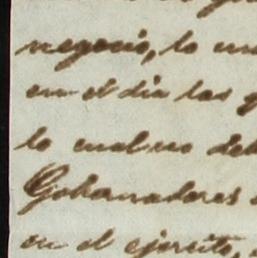 negocio, lo
en el dia las
lo cual no
Gobernadores
en el ejercito,